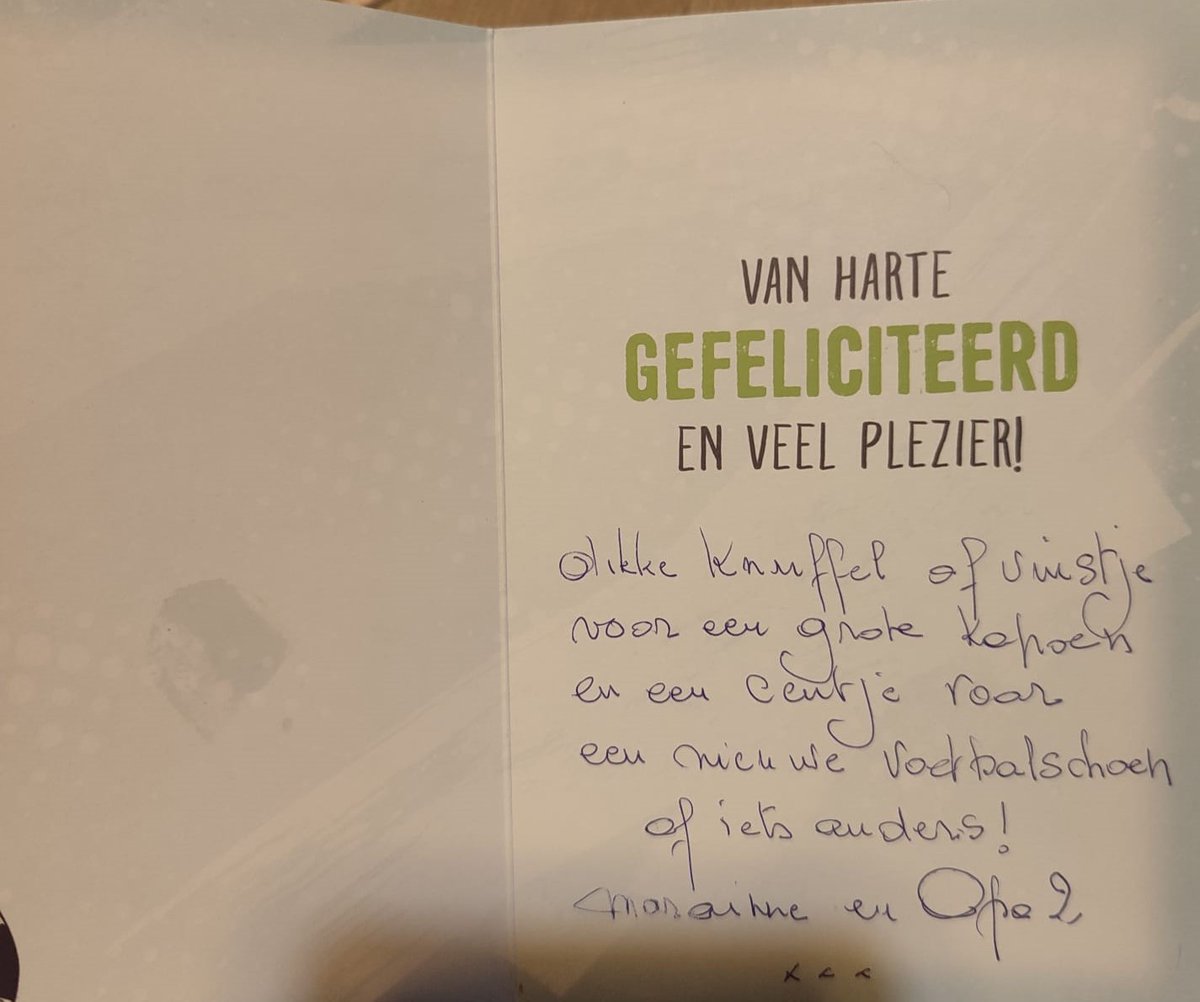 VAN HARTE
GEFELICITEERD
EN VEEL PLEZIER!
dikke knuffel of vuistje
voor een grote kapoen
en een centje voor
een nieuwe voetbalschoen
of iets anders!
en Opa 2
x x x